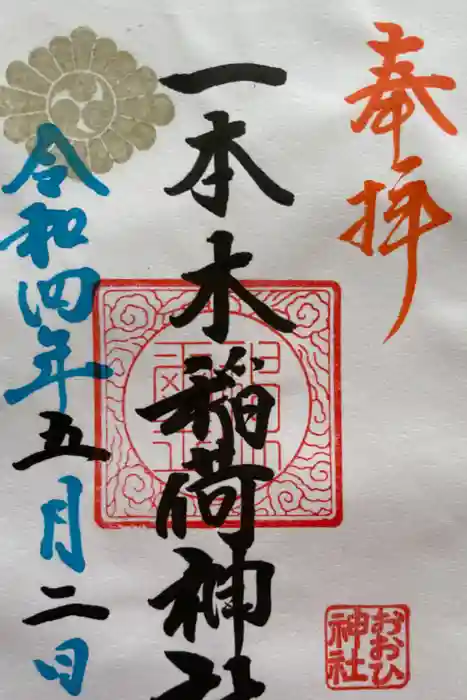 奉拝
一本木稲荷神社
令和四年五月二日
おおひ神社